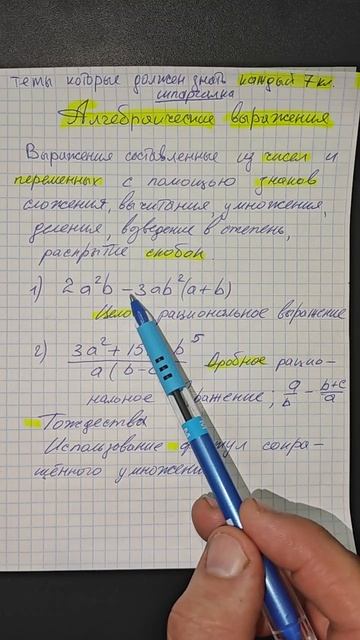 темы которые должен знать каждый 7 кл.
шпаргалка
Алгебраические выражения
Выражения составленные из чисел и
переменных с помощью знаков
сложения, вычитания, умножения,
деления, возведение в степень,
раскрытие скобок.
1) 2a²b - 3ab²(a+b)
Цело рациональное выражение
2) 3a² + 15 b⁵ Дробное рацио-
a(b-c
нальное ражение; a/b - b+c/a
Тождества
Использование фор ул сокра-
щённого умножени